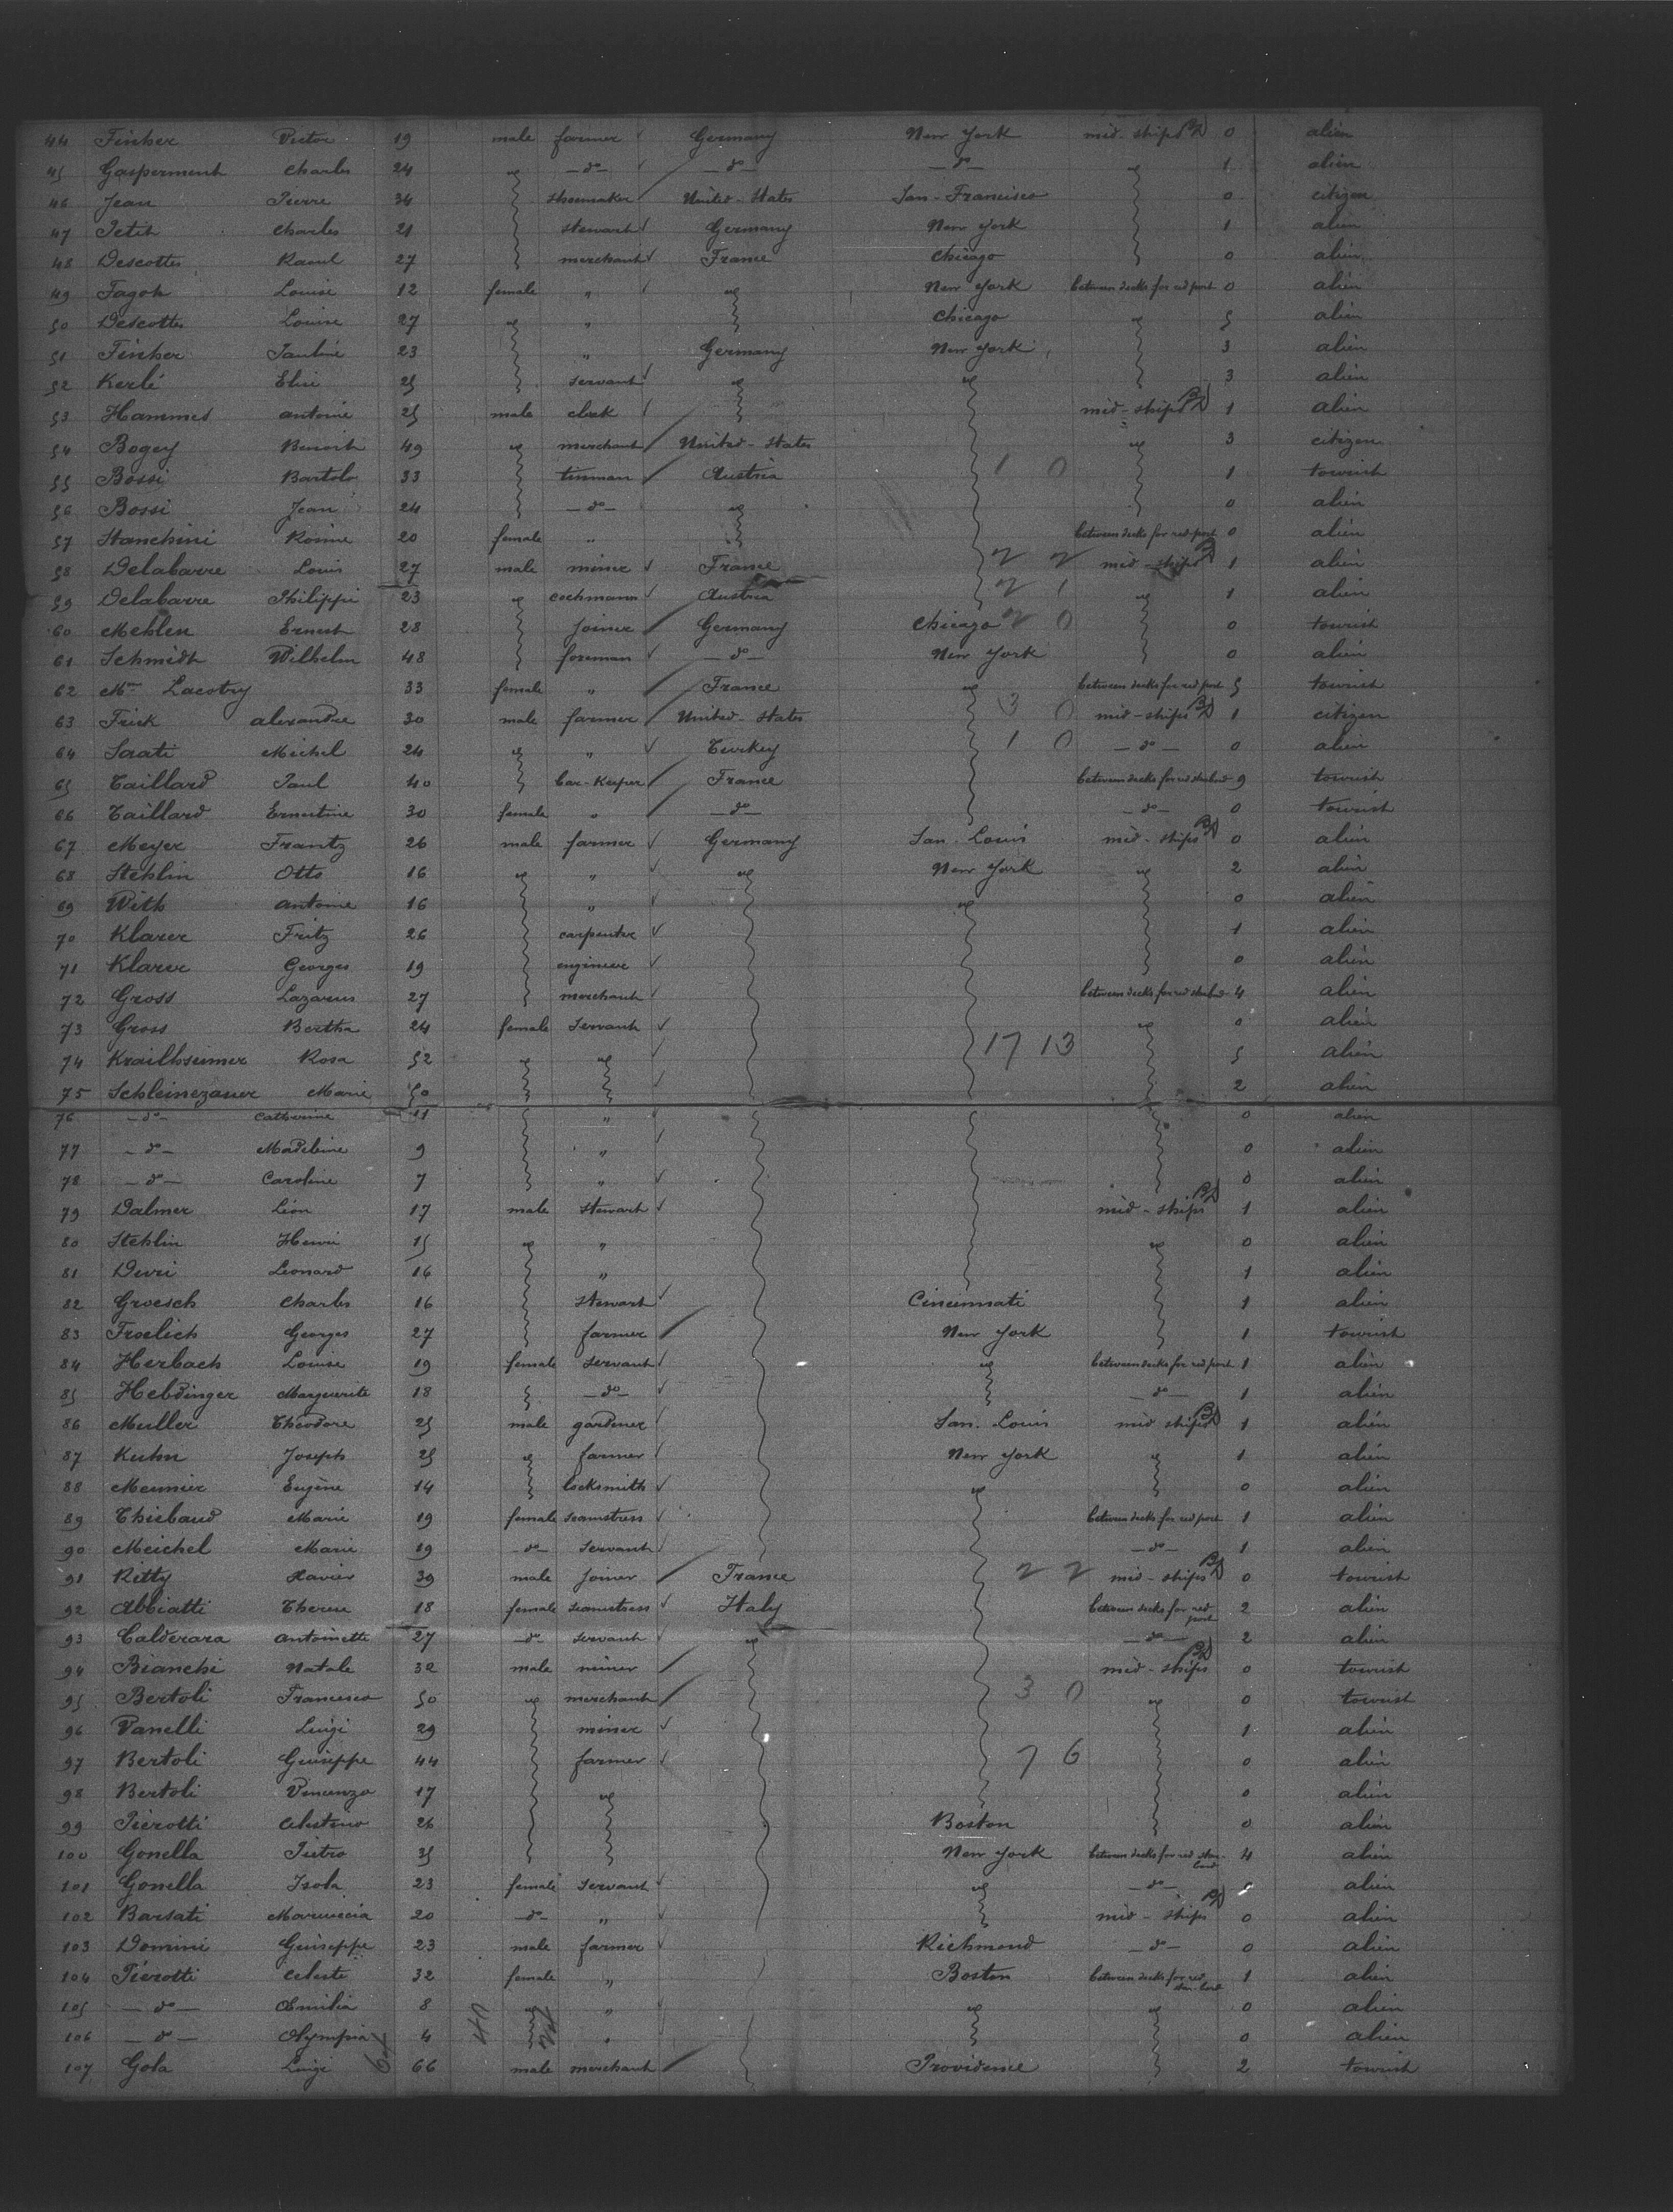 44 Finker Victor 19 male farmer ✓ Germany New York mid-ships 0 alien
45 Gasperment Charles 24 " — do — ✓ — do — — do — " 1 alien
46 Jean Pierre 34 shoemaker United-States San-Francisco 0 citizen
47 Petit Charles 21 stewart ✓ Germany New York 1 alien
48 Descottes Raoul 27 merchant ✓ France Chicago 0 alien
49 Fagot Louise 12 female " ✓ " New York between decks for red port 0 alien
50 Descottes Louise 27 " " Chicago " 5 alien
51 Finker Pauline 23 " Germany New York 3 alien
52 Kerlé Elise 25 servant ✓ " " 3 alien
53 Hammes antoine 25 male clerk mid-ships 1 alien
54 Bogey Benoit 49 " merchant United-States " 3 citizen
55 Bossi Bartolo 33 tinman Austria 1 0 1 tourist
56 Bossi Jean 24 — do — " 0 alien
57 Stanchini Rosine 20 female " between decks for red port 0 alien
58 Delabarre Louis 27 male miner ✓ France 2 2 mid-ships 1 alien
59 Delabarre Philippe 23 " cochmann ✓ Austria 2 1 " 1 alien
60 Mehlen Ernest 28 joiner Germany Chicago 2 0 0 tourist
61 Schmidt Wilhelm 48 foreman ✓ — do — New York 0 alien
62 Mme Lacotry 33 female " France " between decks for red port 5 tourist
63 Frick alexandre 30 male farmer United-States 3 0 mid-ships 1 citizen
64 Saati Michel 24 " " ✓ Turkey 1 0 — do — 0 alien
65 Taillard Paul 40 bar-Keeper France between decks for red starbord 9 tourist
66 Taillard Ernestine 30 female " — do — — do — 0 tourist
67 Meyer Frantz 26 male farmer ✓ Germany San-Louis mid-ships 0 alien
68 Stehlin Otto 16 " " ✓ " New York " 2 alien
69 With antoine 16 " ✓ " 0 alien
70 Klarer Fritz 26 carpenter ✓ 1 alien
71 Klarer Georges 19 engineer ✓ 0 alien
72 Gross Lazarus 27 merchant ✓ between decks for red starbord 4 alien
73 Gross Bertha 24 female servant ✓ " 0 alien
74 Krailhseimer Rosa 52 " " ✓ 17 13 5 alien
75 Schleinezauer Marie 50 ✓ 2 alien
76 — do — Catherine 11 " 0 alien
77 — do — Madeleine 9 " ✓ 0 alien
78 — do — Caroline 7 " ✓ 0 alien
79 Dalmer Léon 17 male stewart ✓ mid-ships 1 alien
80 Stehlin Henri 15 " " " 0 alien
81 Duri Leonard 16 " 1 alien
82 Groesch Charles 16 stewart ✓ Cincinnati 1 alien
83 Froelich Georges 27 farmer New York 1 tourist
84 Herbach Louise 19 female servant ✓ " between decks for red port 1 alien
85 Hebdinger Marguerite 18 — do — ✓ — do — 1 alien
86 Muller Théodore 25 male gardener San-Louis mid ships 1 alien
87 Kuhn Joseph 25 " farmer New York " 1 alien
88 Meunier Eugène 14 locksmith ✓ " 0 alien
89 Thiebaud Marie 19 female seamstress ✓ between decks for red port 1 alien
90 Meichel Marie 19 — do — servant ✓ — do — 1 alien
91 Kitty Xavier 39 male joiner France 2 2 mid-ships 0 tourist
92 Abbiatti Therese 18 female seamstress ✓ Italy between decks for red port 2 alien
93 Calderara antoinette 27 — do — servant ✓ " — do — 2 alien
94 Bianchi Natale 32 male miner mid-ships 0 tourist
95 Bertoli Francesco 50 " merchant 3 0 " 0 tourist
96 Vanelli Luigi 29 miner ✓ 1 alien
97 Bertoli Guiseppe 44 farmer ✓ 7 6 0 alien
98 Bertoli Vincenzo 17 " 0 alien
99 Pierotti Celestino 26 Boston 0 alien
100 Gonella Pietro 35 New York between decks for red starbord 4 alien
101 Gonella Isola 23 female servant ✓ " — do — alien
102 Barsati Maruccia 20 — do — " ✓ mid-ships 0 alien
103 Domini Guiseppe 23 male farmer ✓ Richmond — do — 0 alien
104 Pierotti Celeste 32 female " Boston between decks for red starbord 1 alien
105 — do — Emilia 8 " " ✓ " " 0 alien
106 — do — Olympia 4 " 0 alien
107 Gola Luigi 66 male merchant Providence 2 tourist